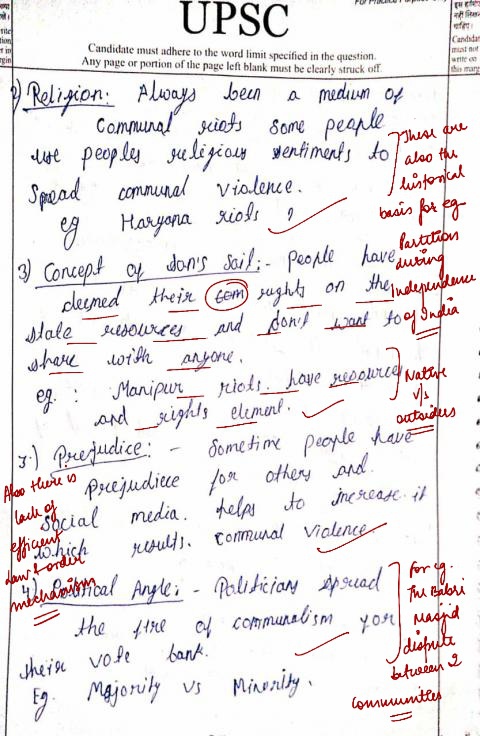 For Practice Purposes
UPSC
Candidate must adhere to the word limit specified in the question.
Any page or portion of the page left blank must be clearly struck off.
Candidat
must not
write on
this marg
2) Religion: Always been a medium of
Communal riots some people
use peoples religious sentiments to
Spread communal violence.
eg Haryana riots ?
These are
also the
historical
basis for eg
Partition
during
Independence
of India
3) Concept of son's Soil:- People have
deemed their com rights on the
state resources and don't want to
share with anyone.
eg. : Manipur riots have resource
and rights element.
Native
v/s
outsiders
3.) Prejudice: - Sometime people have
Prejudiece for others and
Social media. helps to increase it
which results. Communal Violence.
Also there is
lack of
efficient
Law & order
mechanism
4) Political Angle:- Politicians spread
the fire of communalism for
their vote bank.
Eg. Majority vs Minority.
For eg.
The Babri
Masjid
dispute
between 2
Communities